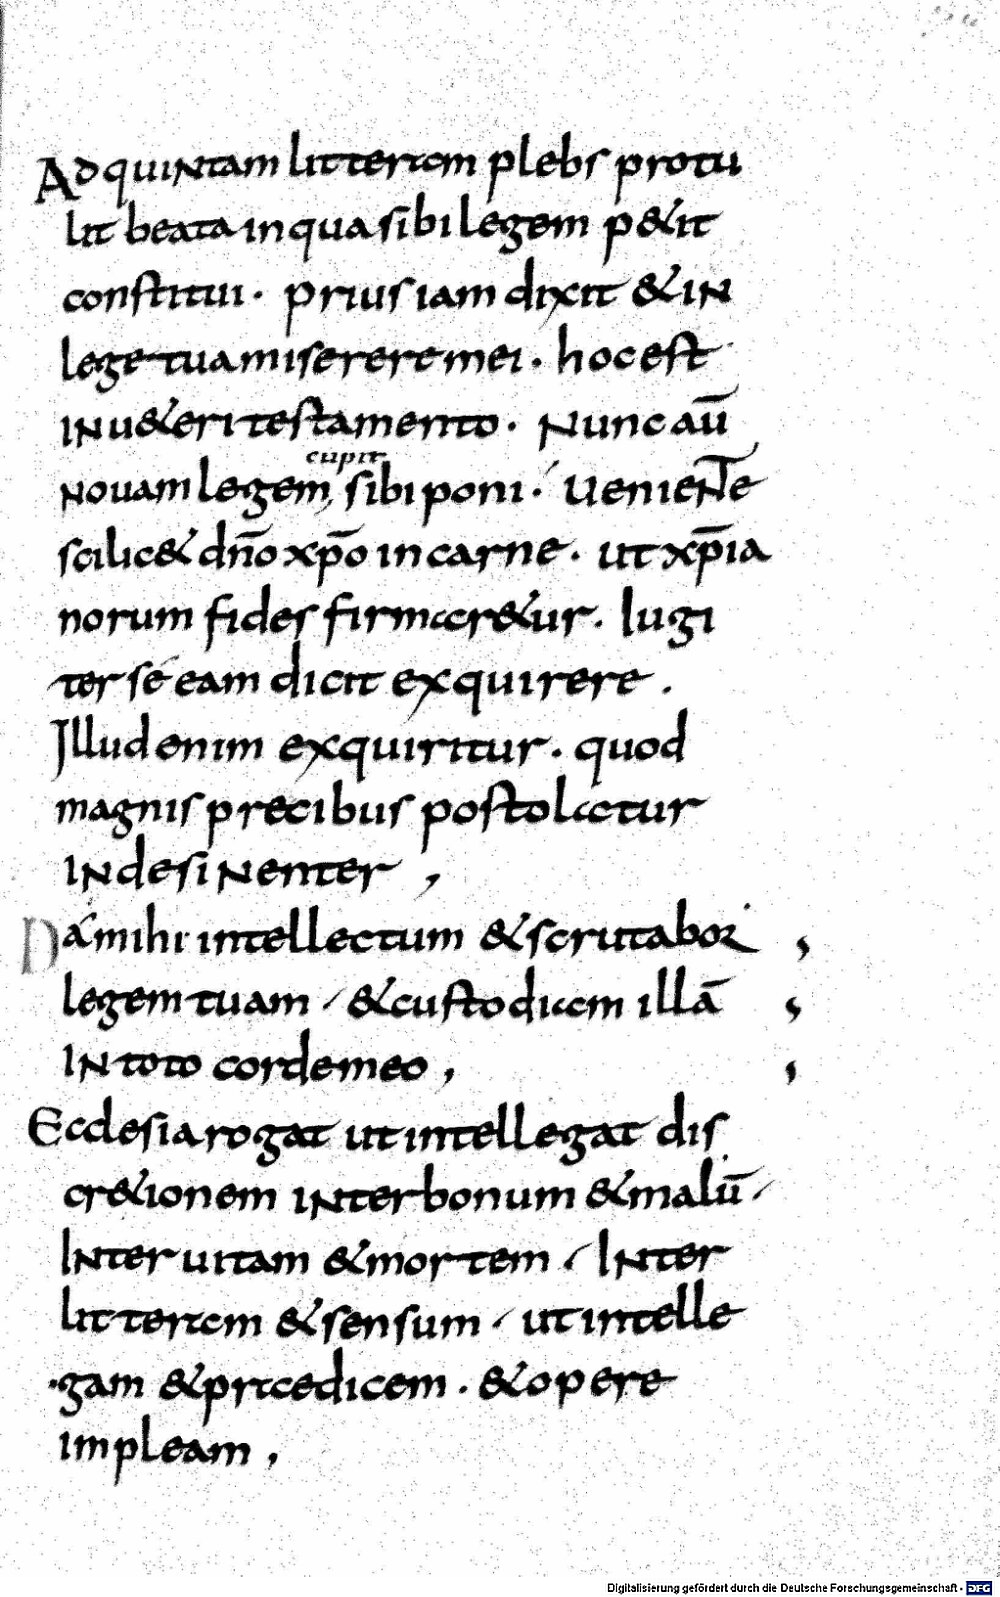 Ad quintam litteram plebs protu
lit beata in qua sibi legem p&it
constitui. Prius iam dixit & in
lege tua miserere mei. hoc est
in u&eri testamento. Nunc aū
cupit
nouam legem, sibi poni. Ueniente
scilic& dn̄o xp̄o in carne. ut xp̄ia
norum fides firmar&ur. lugi
ter se eam dicit exquirere.
Illud enim exquiritur. quod
magnis precibus postolatur
indesinenter,
Da mihi intellectum & scrutabor ,
legem tuam / & custodiam illā ,
in toto corde meo , ,
Ecclesia rogat ut intellegat dis
cr&ionem inter bonum & malū /
Inter uitam & mortem / Inter
litteram & sensum / ut intelle
gam & praedicem. & opere
impleam,
Digitalisierung gefördert durch die Deutsche Forschungsgemeinschaft - DFG